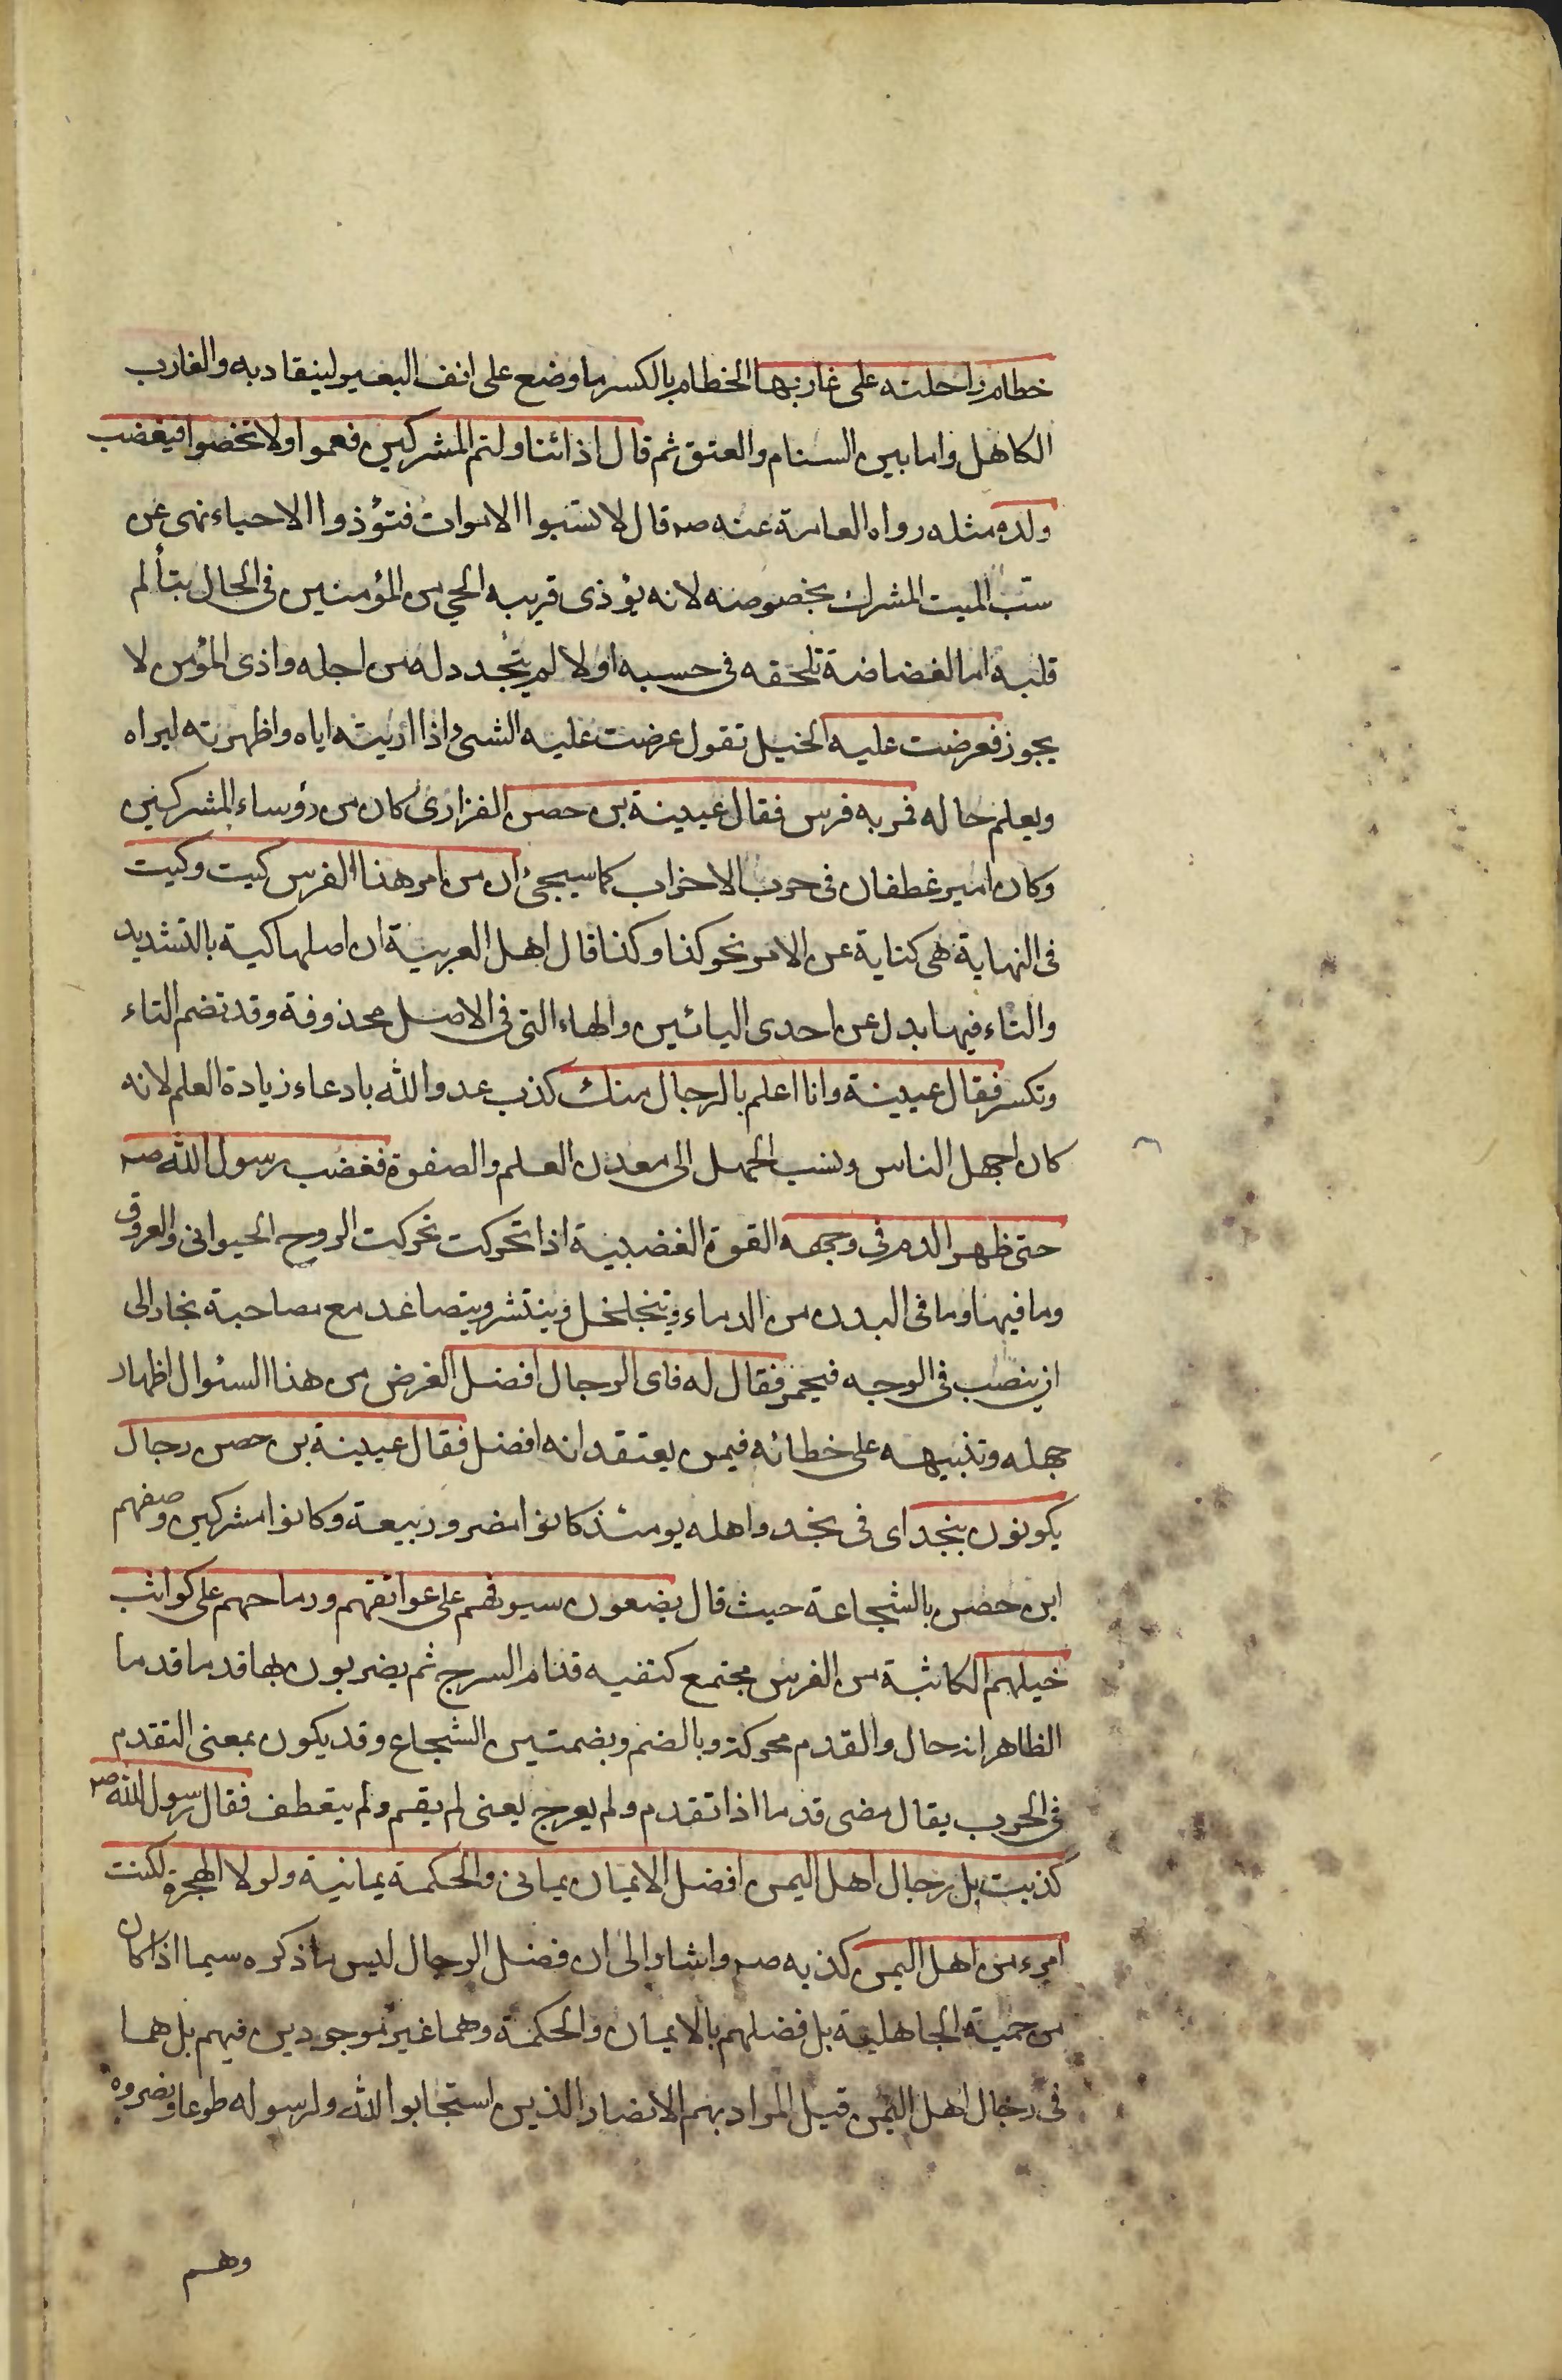 خطام راحلته على غاربها الخطام بالكسر ما وضع على انف البعير لينقاد به والغارب
الكاهل وما بين السنام والعنق ثم قال اذا تناولتم المشركين فعموا ولا تخصوا فيغضب
ولده مثله رواه العامة عنه صه قال لا تسبوا الاموات فتؤذوا الاحياء نهى عن
سب الميت المشرك بخصوصه لانه يؤذى قريبه الحي من المؤمنين فى الحال بتألم
قلبه اما لغضاضة تلحقه فى حسبه او لالم يتجدد له من اجله واذى المؤمن لا
يجوز فعرضت عليه الخيل تقول عرضت عليه الشئ اذا اريته اياه واظهرته ليراه
ويعلم حاله فمر به فرس فقال عيينة بن حصن الفزارى كان من رؤساء المشركين
وكان امير غطفان فى حرب الاحزاب كما سيجئ ان من امر هذا الفرس كيت وكيت
فى النهاية هى كناية عن الامر نحو كذا وكذا قال اهل العربية ان اصلها كية بالتشديد
والتاء فيها بدل عن احدى اليائين والهاء التى فى الاصل محذوفة وقد تضم التاء
وتكسر فقال عيينة وانا اعلم بالرجال منك كذب عدو الله بادعاء زيادة العلم لانه
كان اجهل الناس ونسب الجهل الى معدن العلم والصفوة فغضب رسول الله صه
حتى ظهر الدم فى وجهه القوة الغضبية اذا تحركت تحركت الروح الحيوانى والعروق
وما فيها وما فى البدن من الدماء ويتخلخل وينتشر ويتصاعد مع مصاحبة بخار الى
ان ينصب فى الوجه فيحمر فقال له فاى الرجال افضل الغرض من هذا السئوال اظهار
جهله وتنبيهه على خطائه فيمن يعتقد انه افضل فقال عيينة بن حصن رجال
يكونون بنجد اى فى نجد واهله يومئذ كانوا مضر وربيعة وكانوا مشركين وصفهم
ابن حصن بالشجاعة حيث قال يضعون سيوفهم على عواتقهم ورماحهم على كواثب
خيلهم الكاثبة من الفرس مجتمع كتفيه قدام السرج ثم يضربون بها قدما قدما
الظاهر انه حال والقدم محركة وبالضم وبضمتين الشجاع وقد يكون بمعنى التقدم
فى الحرب يقال مضى قدما اذا تقدم ولم يعرج يعنى لم يقم ولم ينعطف فقال رسول الله صه
كذبت بل رجال اهل اليمن افضل الايمان يمانى والحكمة يمانية ولولا الهجرة لكنت
امرء من اهل اليمن كذبه صه واشار الى ان فضل الرجال ليس ما ذكره سيما اذا كان
من حمية الجاهلية بل فضلهم بالايمان والحكمة وهما غير موجودين فيهم بل هما
فى رجال اهل اليمن قيل المراد بهم الانصار الذين استجابوا لله ولرسوله طوعا ونصروه
وهم